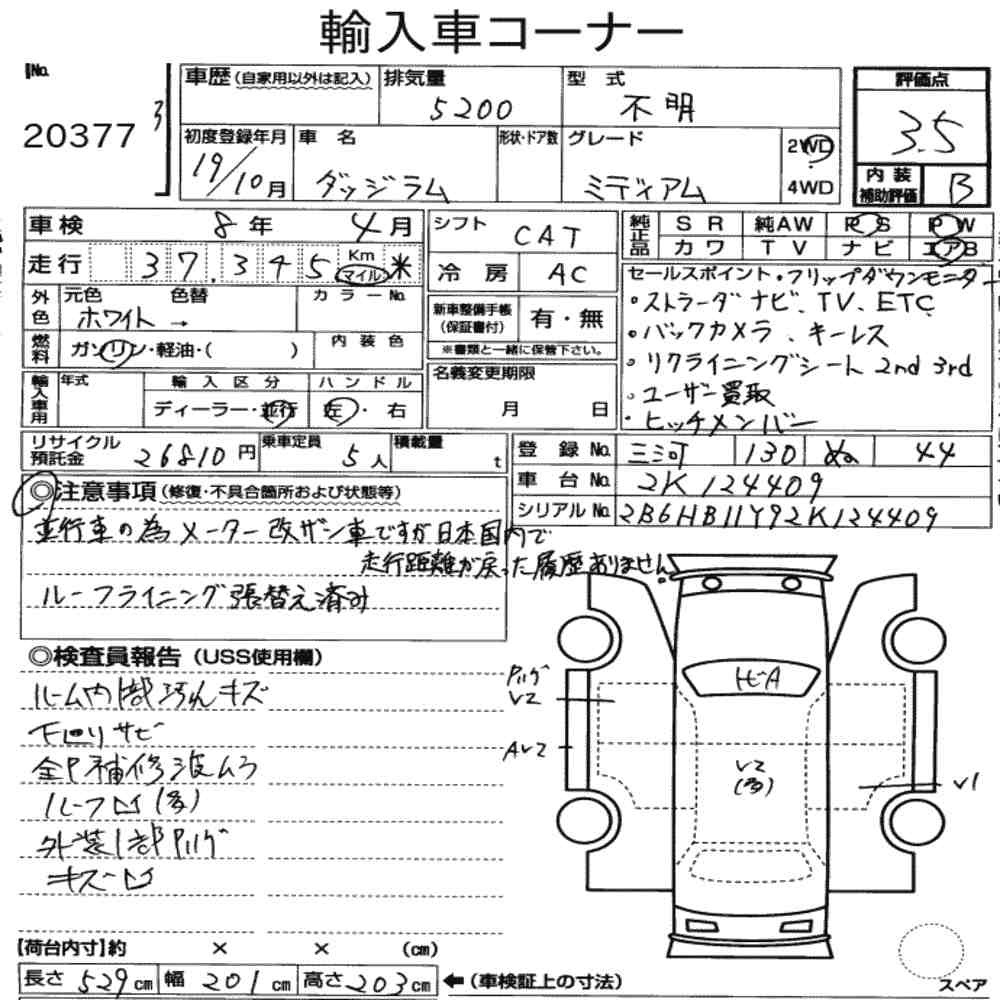 輸入車コーナー
No.
20377
車歴(自家用以外は記入)
排気量
5200
型 式
不明
評価点
3.5
初度登録年月
19/10月
車 名
ダッジラム
形状・ドア数
グレード
ミディアム
2WD
4WD
内装
補助評価
B
車検 8年 4月
シフト
CAT
純正品
SR 純AW PS PW
カワ TV ナビ エアB
走行 37,345 Km マイル 米
冷房
AC
セールスポイント・フリップダウンモニター
・ストラーダナビ、TV、ETC
・バックカメラ、キーレス
・リクライニングシート 2nd 3rd
・ユーザー買取
・ヒッチメンバー
外色
元色 色替
ホワイト →
カラーNo.
新車整備手帳
(保証書付)
有・無
※書類と一緒に保管下さい。
燃料
ガソリン・軽油・( )
内装色
名義変更期限
月 日
輸入車用
年式
輸入区分
ディーラー・並行
ハンドル
左・右
リサイクル
預託金
26810円
乗車定員
5人
積載量
t
登録No. 三河 130 ぬ 44
車台No. 2K124409
シリアルNo. 2B6HB11Y92K124409
◎注意事項(修復・不具合箇所および状態等)
並行車の為メーター改ザン車ですが日本国内で
走行距離が戻った履歴ありません。
ルーフライニング張替え済み
◎検査員報告(USS使用欄)
ルーム内部汚れキズ
下回りサビ
全P補修波ムラ
ルーフ凹(多)
外装1部ハゲ
キズ凹
V2
AV2
ヒビA
V2
(多)
V1
【荷台内寸】約 × × (cm)
長さ 529cm 幅 201cm 高さ 203cm
←(車検証上の寸法)
スペア